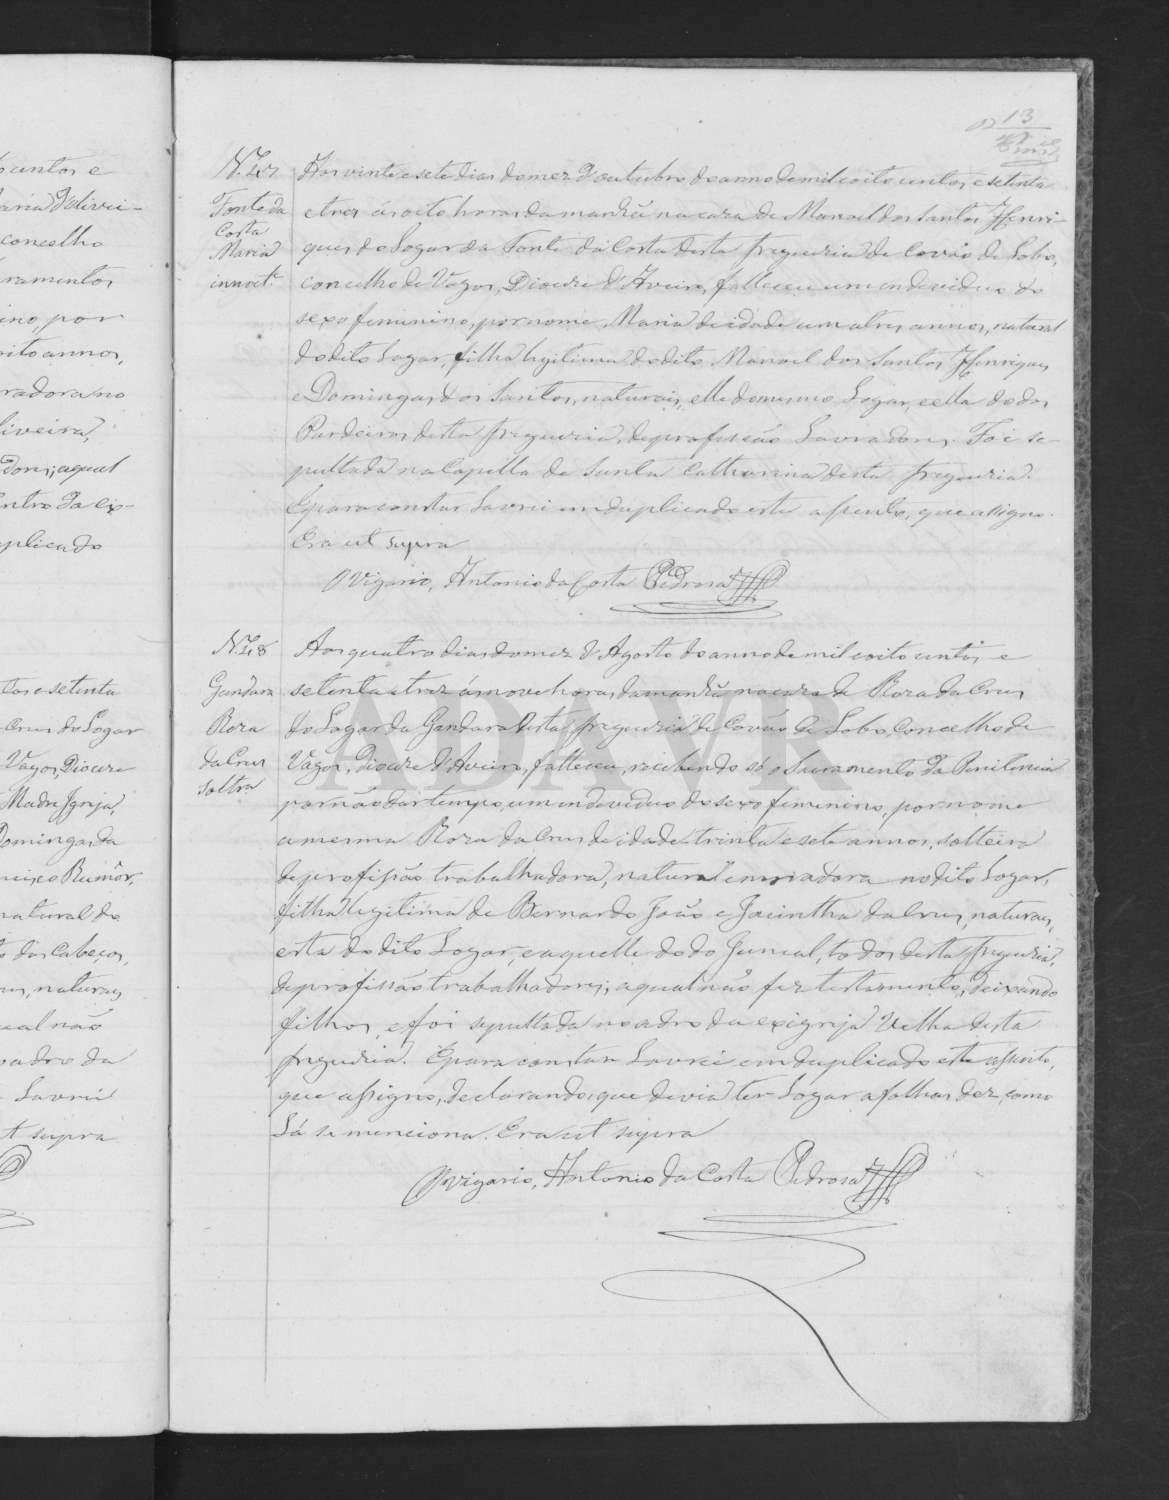 13
N. 47
Fonte da
Costa
Maria
innoct.
Aos vinte e sete dias do mez d'outubro do anno de mil e oito centos e setenta
e tres ás oito horas da manhã na caza de Manoel dos Santos Henri-
ques do Logar da Fonte da Costa desta freguezia de Covão do Lobo,
concelho de Vagos, Diocese d'Aveiro, falleceu um endeviduo do
sexo feminino, por nome, Maria de idade annos, natural
do dito Logar, filha legitima do dito Manoel dos Santos Henriques
e Domingas dos Santos, naturais, elle do mesmo Logar, e ella do dos
Pardeiros desta freguezia, de profissão Lavradores. Foi se-
pultada na Capella de Santa Catharina desta freguezia.
E para constar Lavrei em duplicado este assento, que assigno.
Era ut supra
O Vigario, Antonio da Costa Pedrosa
N. 48
Gandara
Roza
da Crus
soltra
Aos quatro dias do mez d'Agosto do anno de mil e oito centos e
setenta e trez ás nove horas da manhã na caza de Roza da Crus
do Logar da Gandara desta freguezia de Covão do Lobo, Concelho de
Vagos, Diocese d'Aveiro, falleceu, recebendo só o Sacramento da Penitencia
por não dar tempo, um endeviduo do sexo feminino, por nome
a mesma Roza da Crus de idade trinta e sete annos, solteira
de profissão trabalhadora, natural e moradora no dito Logar,
filha legitima de Bernardo João e Jacintha da Crus, naturaes,
esta do dito Logar, e aquelle do do Juncal, todos desta freguezia,
de profissão trabalhadores; a qual não fez testamento, deixando
filhos, e foi sepultada no adro da exigreja Velha desta
freguezia. E para constar Lavrei em duplicado este assento,
que assigno, declarando, que devia ter Logar a folhas dez, como
Lá se menciona. Era ut supra
O Vigario, Antonio da Costa Pedrosa
ADAVR
centos e
Maria d'Olivei-
concelho
cramentos
ino, por
oito annos,
radora no
liveira,
dores; a qual
entro da ex-
plicado
tos e setenta
Crus do Logar
Vagos, Diocese
Madre Igreja,
Domingas da
natural do
das Cabeços,
naturaes
ual não
adro da
Lavrei
t supra